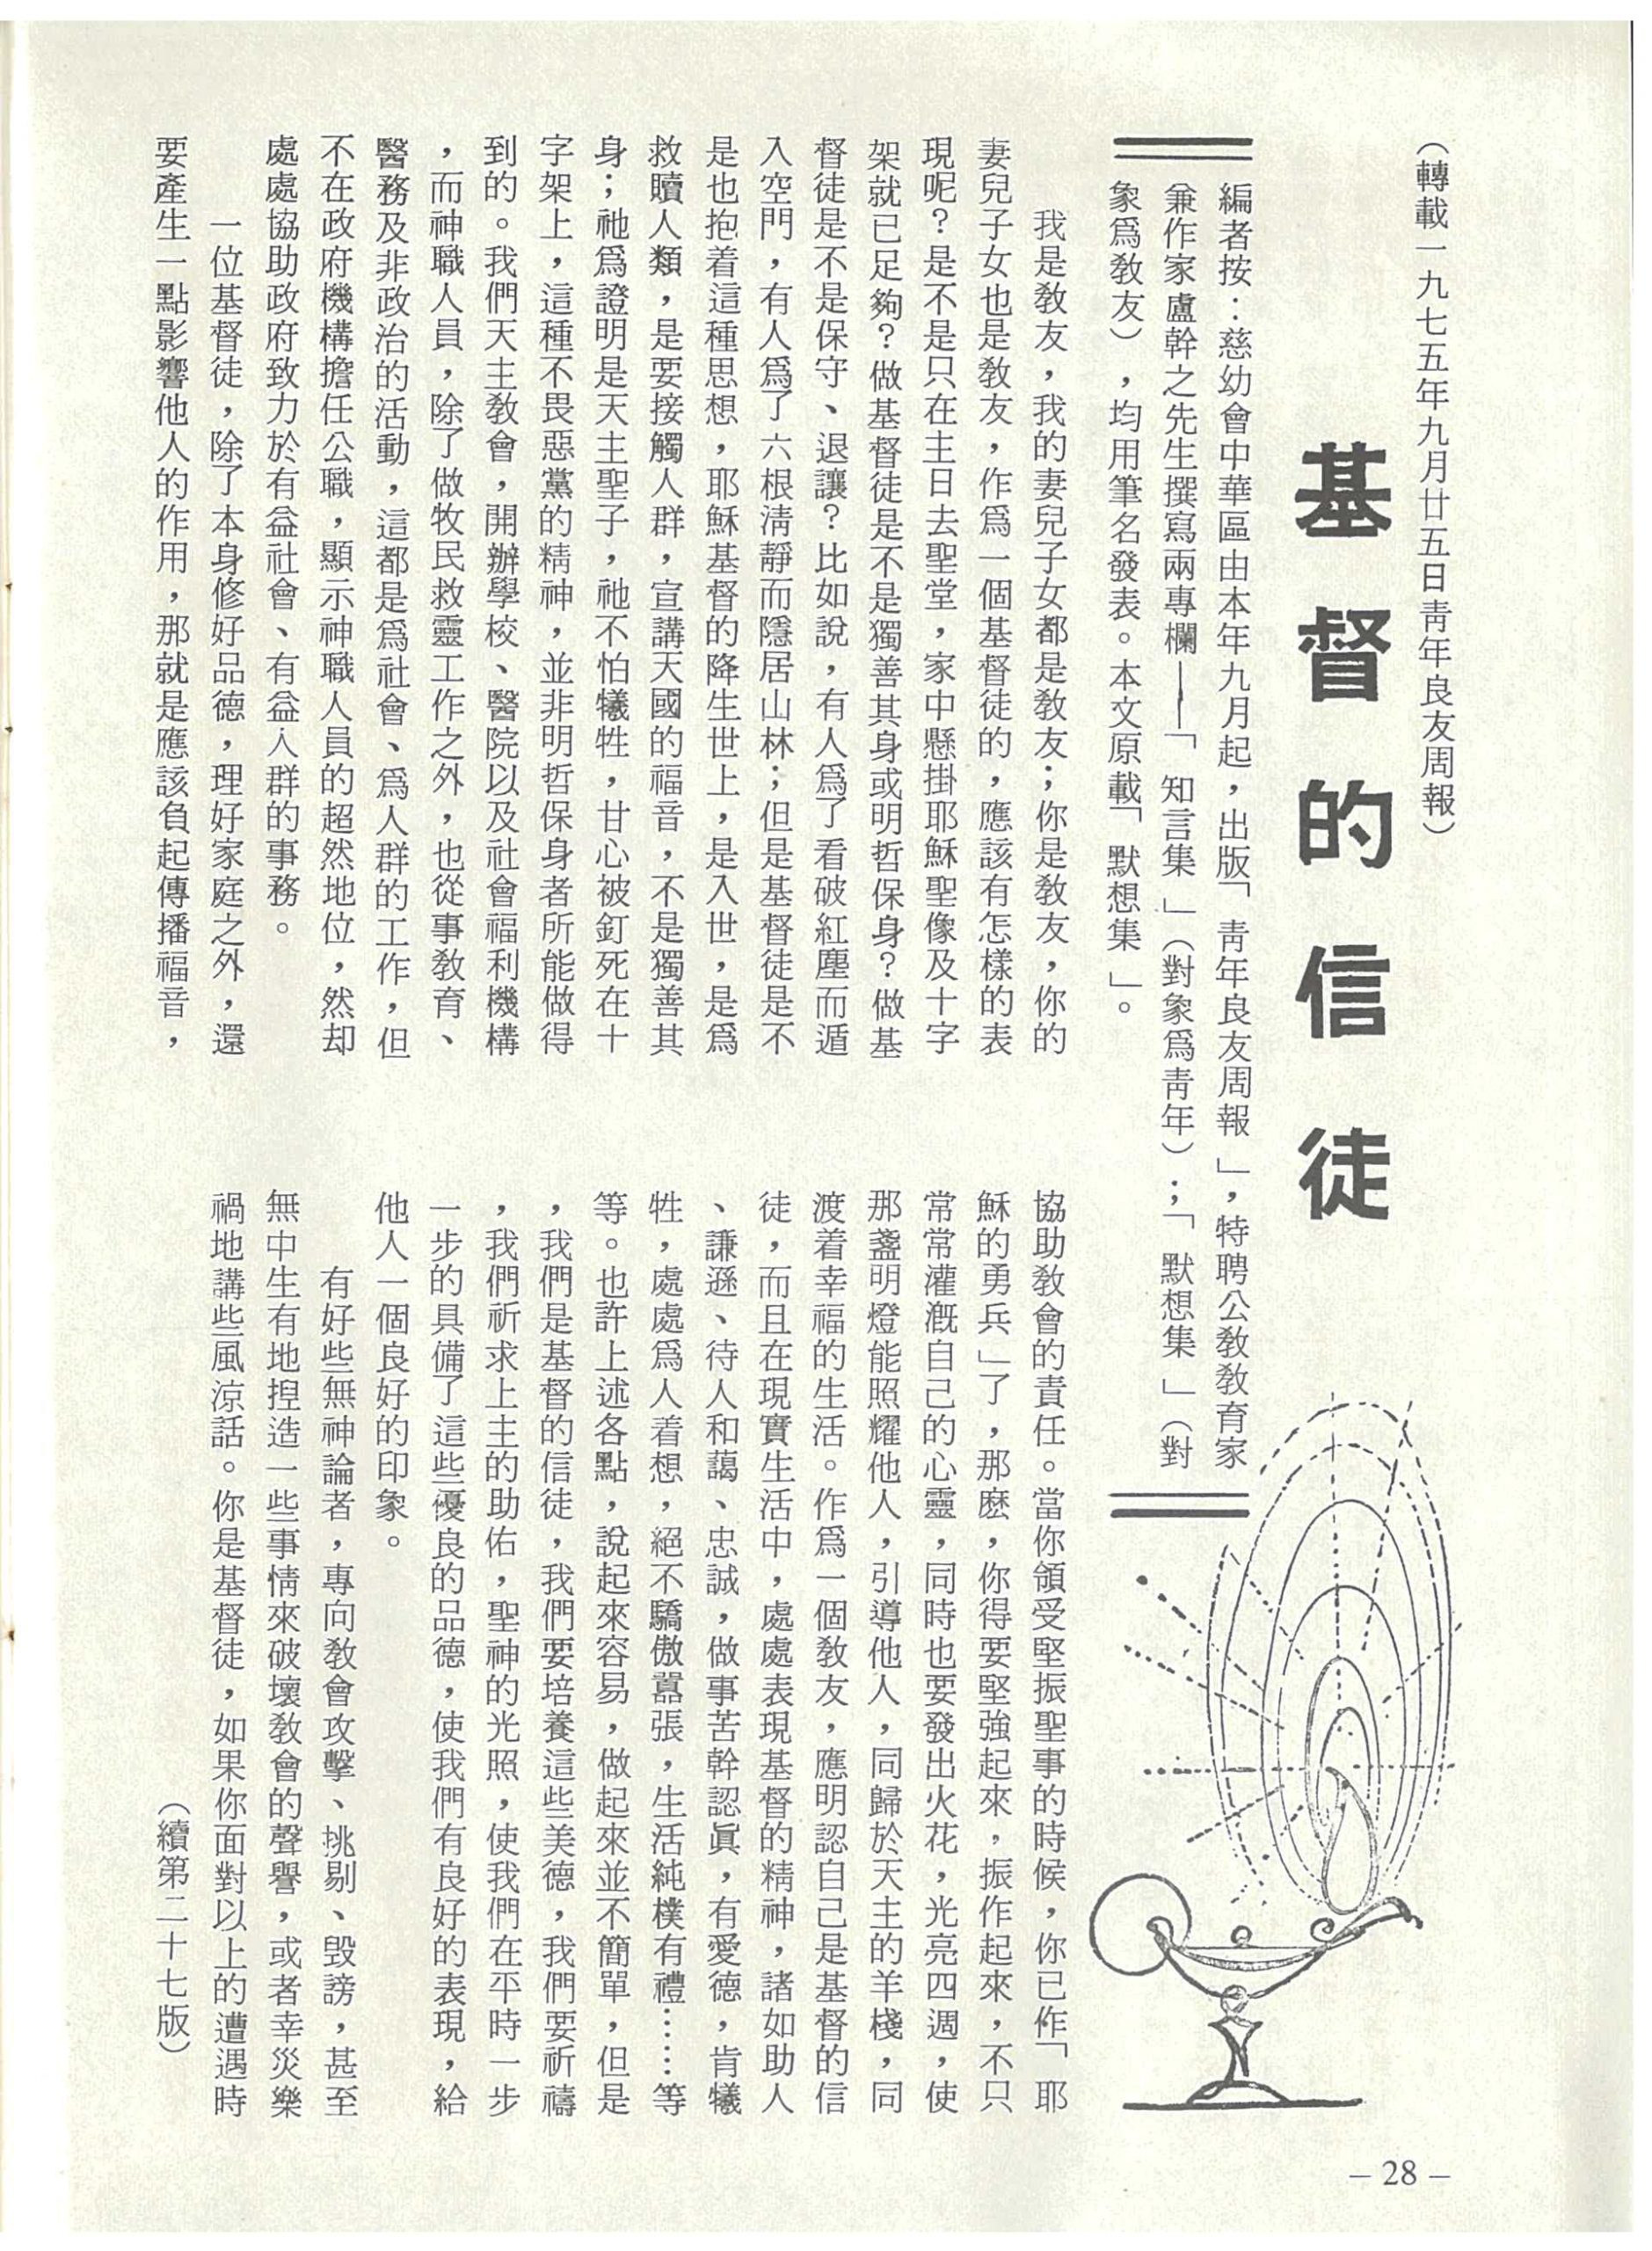 （轉載一九七五年九月廿五日靑年良友周報）
基督的信徒
編者按：慈幼會中華區由本年九月起，出版「靑年良友周報」，特聘公敎敎育家
兼作家盧幹之先生撰寫兩專欄——「知言集」（對象爲靑年）；「默想集」（對
象爲敎友），均用筆名發表。本文原載「默想集」。
我是敎友，我的妻兒子女都是敎友；你是敎友，你的
妻兒子女也是敎友，作爲一個基督徒的，應該有怎樣的表
現呢？是不是只在主日去聖堂，家中懸掛耶穌聖像及十字
架就已足夠？做基督徒是不是獨善其身或明哲保身？做基
督徒是不是保守、退讓？比如說，有人爲了看破紅塵而遁
入空門，有人爲了六根淸靜而隱居山林；但是基督徒是不
是也抱着這種思想，耶穌基督的降生世上，是入世，是爲
救贖人類，是要接觸人群，宣講天國的福音，不是獨善其
身；祂爲證明是天主聖子，祂不怕犧牲，甘心被釘死在十
字架上，這種不畏惡黨的精神，並非明哲保身者所能做得
到的。我們天主敎會，開辦學校、醫院以及社會福利機構
，而神職人員，除了做牧民救靈工作之外，也從事敎育、
醫務及非政治的活動，這都是爲社會、爲人群的工作，但
不在政府機構擔任公職，顯示神職人員的超然地位，然却
處處協助政府致力於有益社會、有益人群的事務。
一位基督徒，除了本身修好品德，理好家庭之外，還
要產生一點影響他人的作用，那就是應該負起傳播福音，
協助敎會的責任。當你領受堅振聖事的時候，你已作「耶
穌的勇兵」了，那麽，你得要堅強起來，振作起來，不只
常常灌漑自己的心靈，同時也要發出火花，光亮四週，使
那盞明燈能照耀他人，引導他人，同歸於天主的羊棧，同
渡着幸福的生活。作爲一個敎友，應明認自己是基督的信
徒，而且在現實生活中，處處表現基督的精神，諸如助人
、謙遜、待人和藹、忠誠，做事苦幹認眞，有愛德，肯犧
牲，處處爲人着想，絕不驕傲囂張，生活純樸有禮……等
等。也許上述各點，說起來容易，做起來並不簡單，但是
，我們是基督的信徒，我們要培養這些美德，我們要祈禱
，我們祈求上主的助佑，聖神的光照，使我們在平時一步
一步的具備了這些優良的品德，使我們有良好的表現，給
他人一個良好的印象。
有好些無神論者，專向敎會攻擊、挑剔、毀謗，甚至
無中生有地揑造一些事情來破壞敎會的聲譽，或者幸災樂
禍地講些風涼話。你是基督徒，如果你面對以上的遭遇時
（續第二十七版）
– 28 –